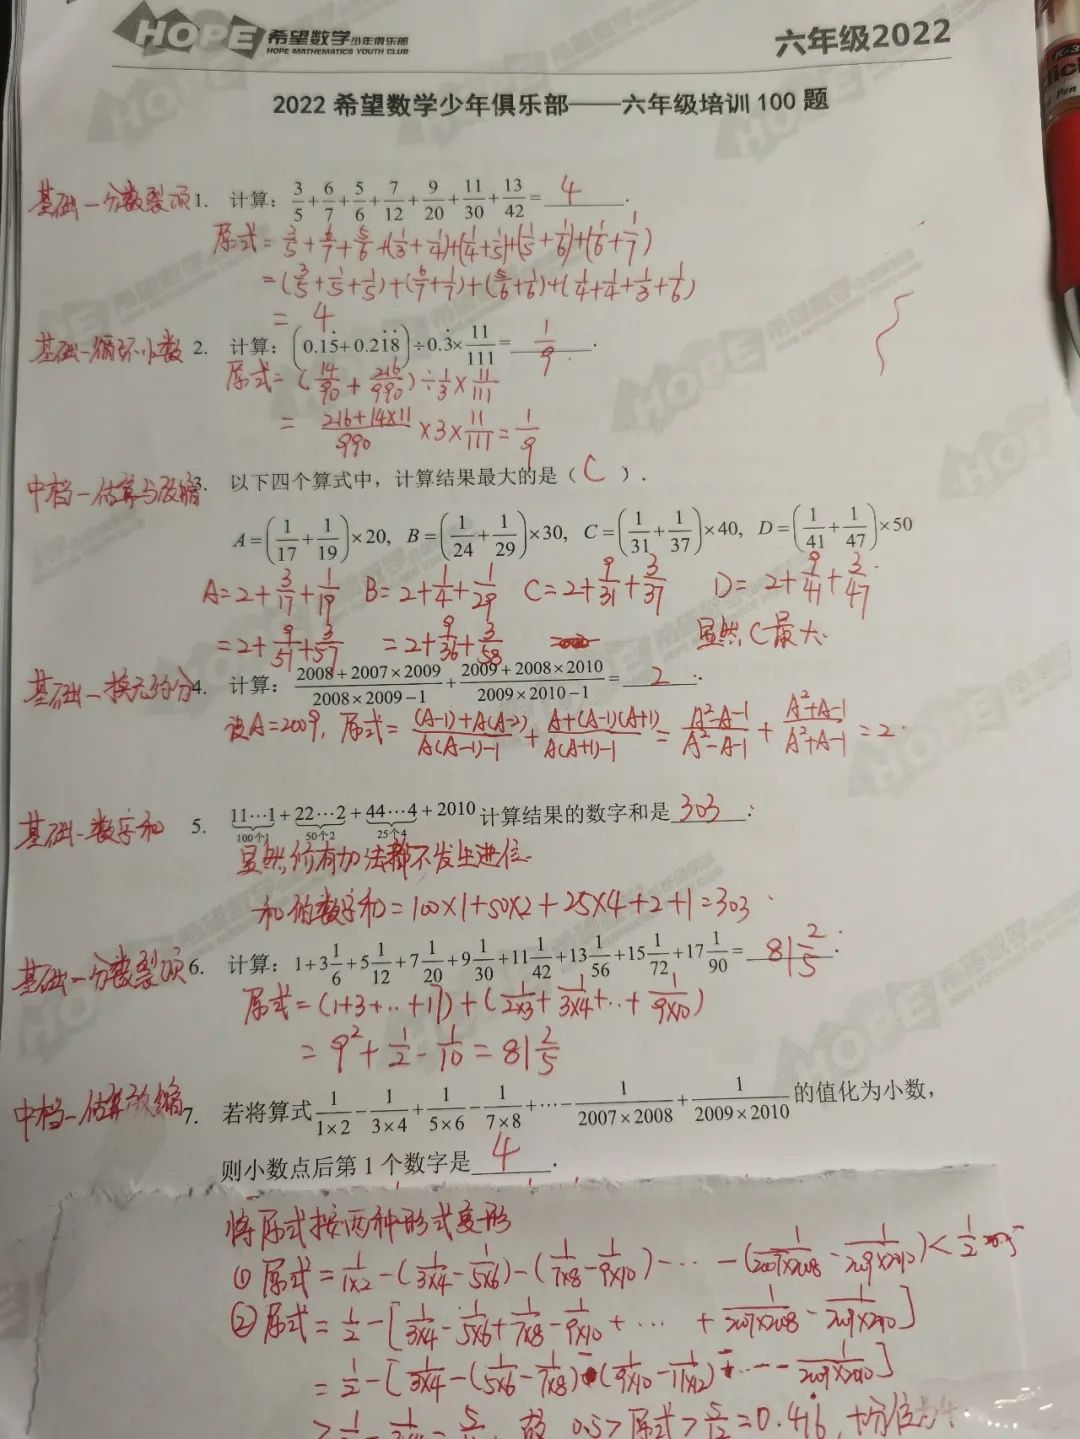 HOPE 希望数学少年俱乐部 六年级2022
HOPE MATHEMATICS YOUTH CLUB
2022 希望数学少年俱乐部——六年级培训 100 题
基础—分数裂项 1. 计算：3/5+6/7+5/6+7/12+9/20+11/30+13/42= 4 .
原式=3/5+6/7+5/6+(1/3+1/4)+(1/4+1/5)+(1/5+1/6)+(1/6+1/7)
=(3/5+1/5+1/5)+(6/7+1/7)+(5/6+1/6)+(1/4+1/4+1/3+1/6)
= 4
基础—循环小数 2. 计算：(0.15̇+0.21̇8̇)÷0.3̇×11/111= 1/9 .
原式=(14/90+216/990)÷1/3×11/111
= (216+14×11)/990 ×3×11/111=1/9
中档—估算与放缩 3. 以下四个算式中，计算结果最大的是（ C ）.
A=(1/17+1/19)×20, B=(1/24+1/29)×30, C=(1/31+1/37)×40, D=(1/41+1/47)×50
A=2+3/17+1/19 B=2+1/4+1/29 C=2+9/31+3/37 D=2+9/41+3/47
=2+9/51+3/57 =2+9/36+3/58 显然C最大.
基础—换元约分 4. 计算：(2008+2007×2009)/(2008×2009−1)+(2009+2008×2010)/(2009×2010−1)= 2 .
设A=2009, 原式=((A-1)+A(A-2))/(A(A-1)-1)+(A+(A-1)(A+1))/(A(A+1)-1)=(A²-A-1)/(A²-A-1)+(A²+A-1)/(A²+A-1)=2.
基础—数字和 5. 11⋯1+22⋯2+44⋯4+2010 计算结果的数字和是 303 .
100个1 50个2 25个4
显然所有加法都不发生进位.
和的数字和=100×1+50×2+25×4+2+1=303.
基础—分数裂项 6. 计算：1+3 1/6+5 1/12+7 1/20+9 1/30+11 1/42+13 1/56+15 1/72+17 1/90= 81 2/5 .
原式=(1+3+..+17)+(1/2×3+1/3×4+..+1/9×10)
=9²+1/2-1/10=81 2/5
中档—估算放缩 7. 若将算式 1/1×2−1/3×4+1/5×6−1/7×8+⋯−1/2007×2008+1/2009×2010 的值化为小数，
则小数点后第 1 个数字是 4 .
将原式按两种形式变形
① 原式=1/1×2-(1/3×4-1/5×6)-(1/7×8-1/9×10)-⋯-(1/2007×2008-1/2009×2010)<1/2
② 原式=1/2-[1/3×4-1/5×6+1/7×8-1/9×10+⋯+1/2007×2008-1/2009×2010]
=1/2-[1/3×4-(1/5×6-1/7×8)-(1/9×10-1/11×12)-⋯-1/2009×2010]
>1/2-1/3×4=5/12, 故 0.5>原式>5/12=0.416̇, 十分位为4.